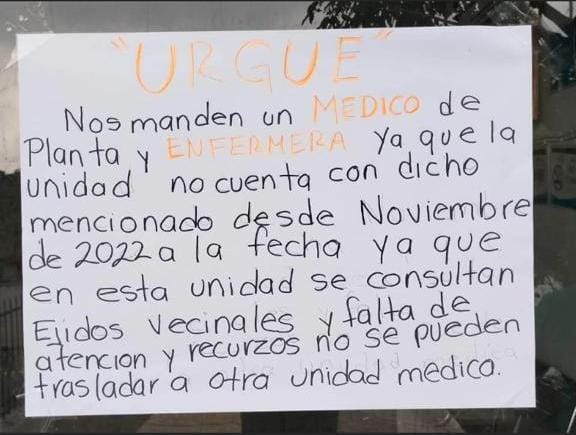 "URGUE"
Nos manden un MEDICO de
Planta y ENFERMERA ya que la
unidad no cuenta con dicho
mencionado desde Noviembre
de 2022 a la fecha ya que
en esta unidad se consultan
Ejidos vecinales y falta de
atencion y recurzos no se pueden
trasladar a otra unidad medica.